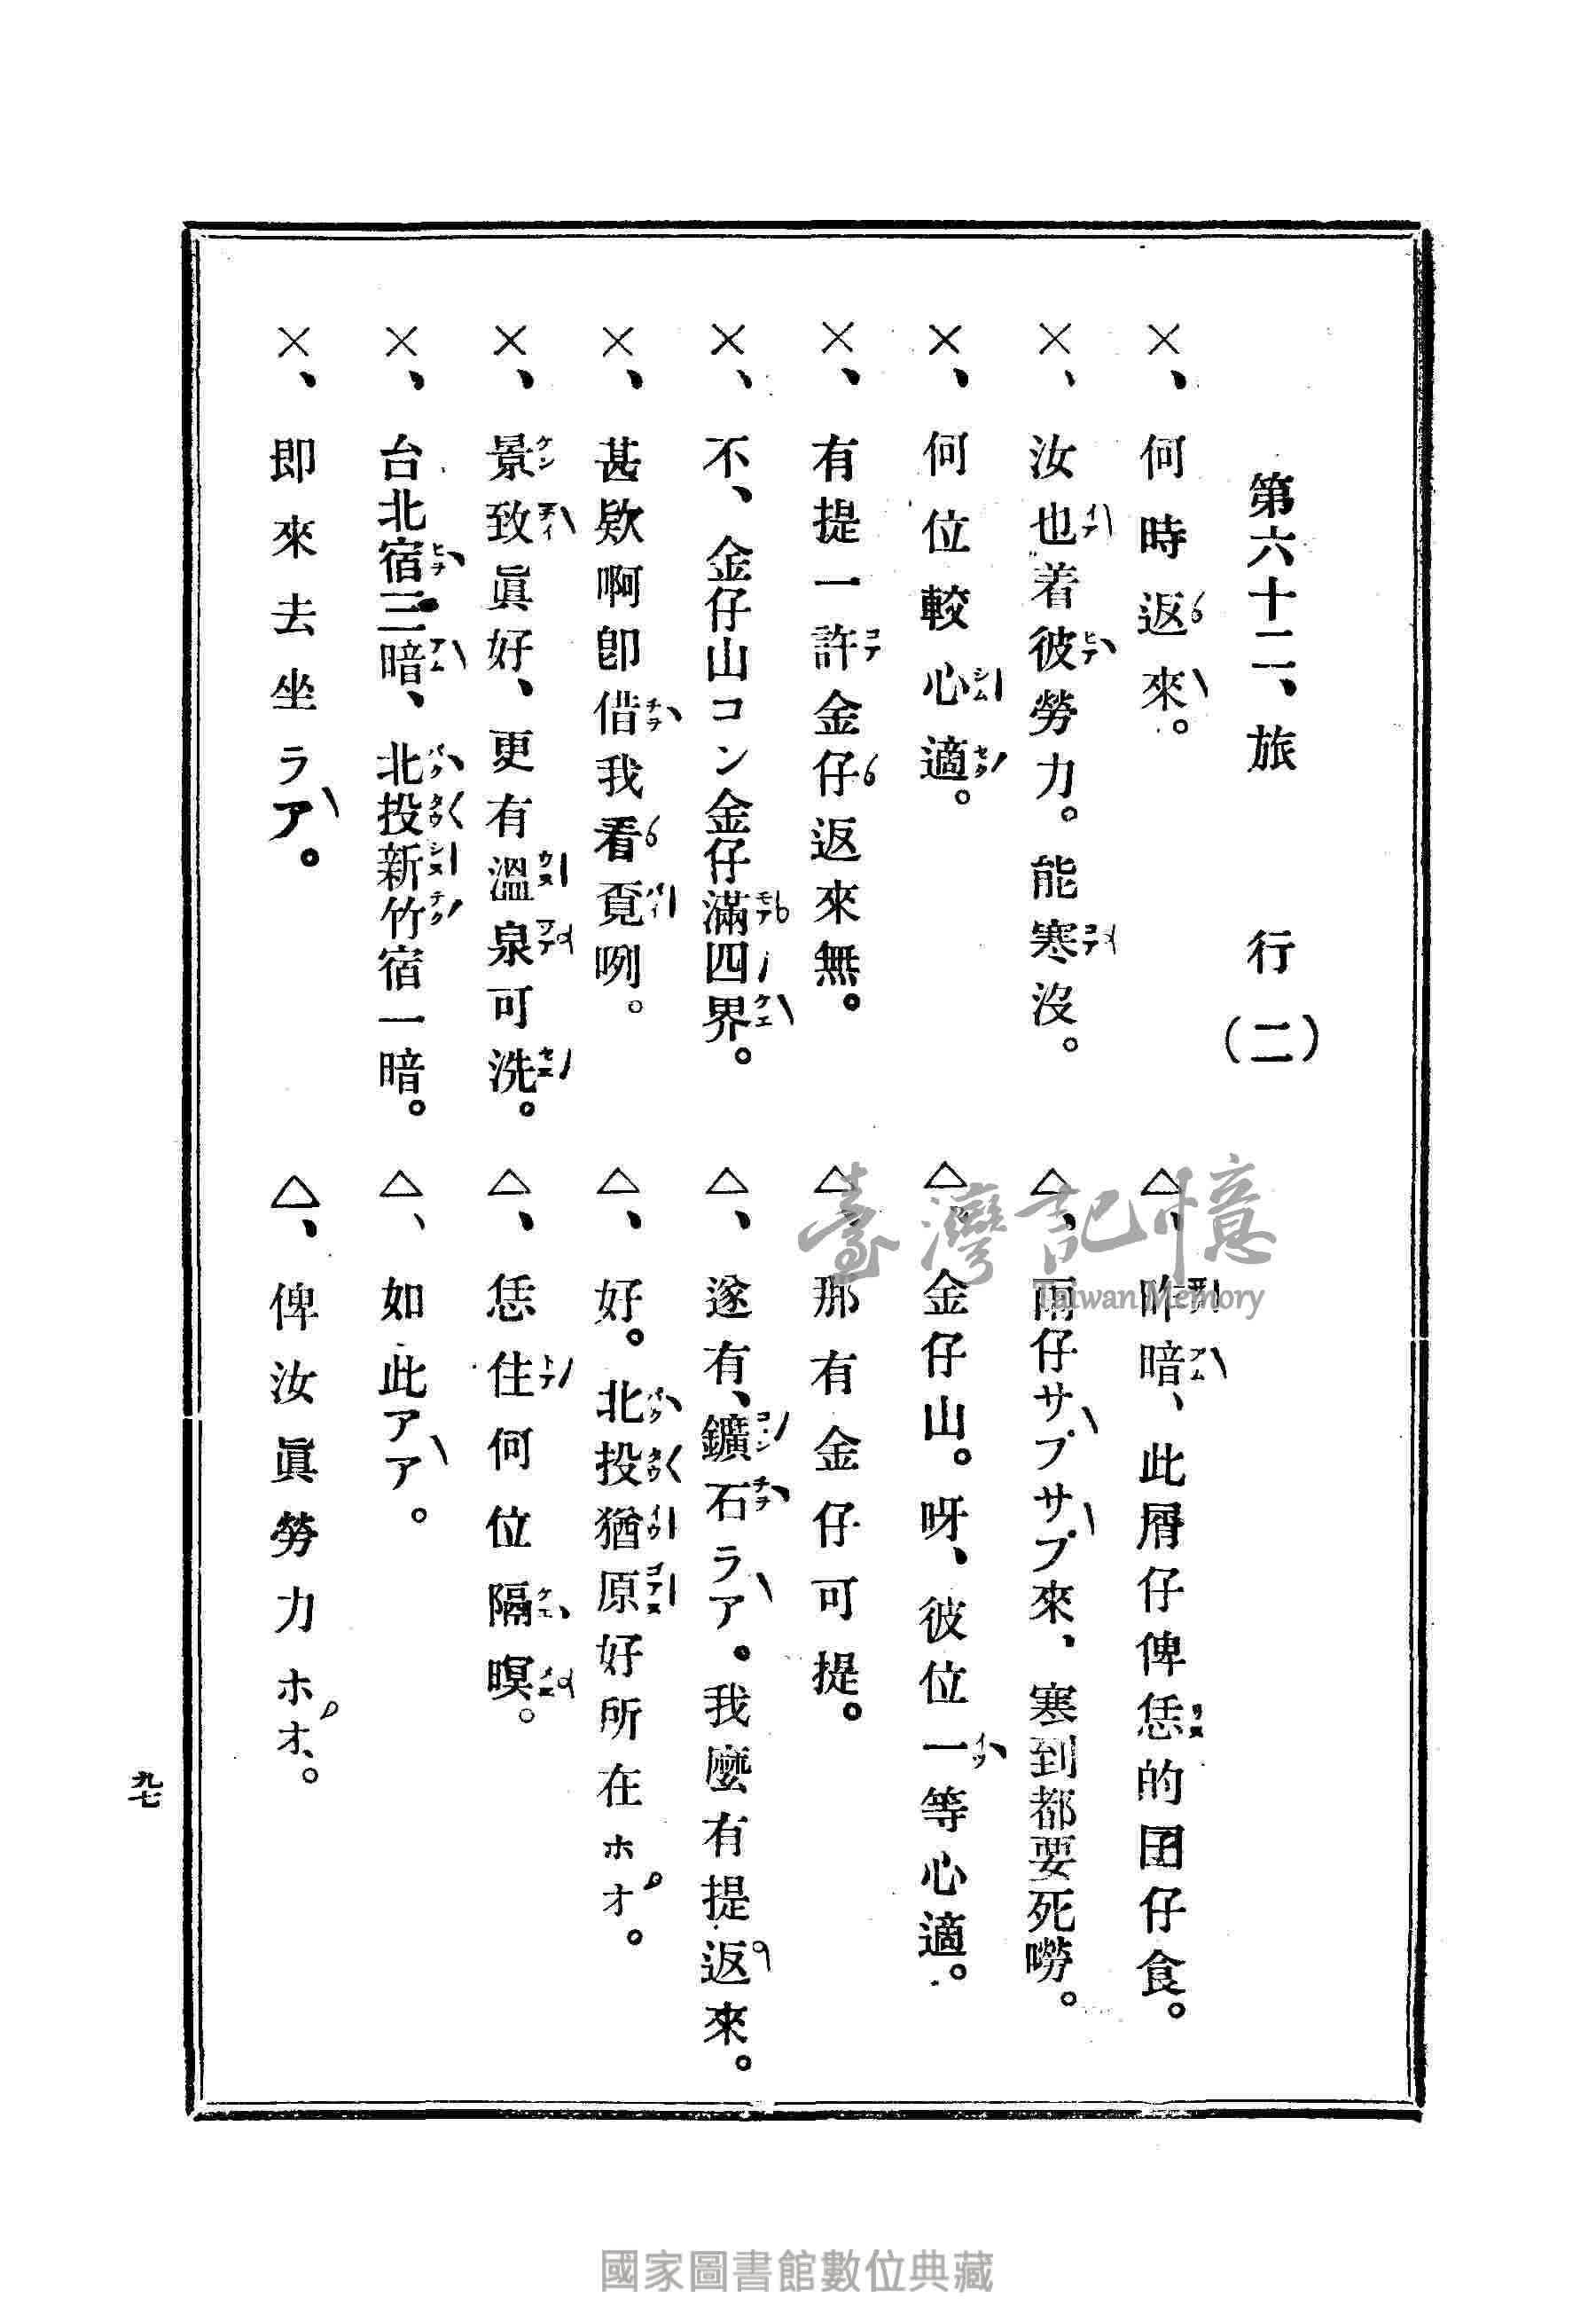 第六十二、旅行（二）
×、何時返來。
△、昨暗、此屑仔俾恁的囝仔食。
×、汝也着彼勞力。能寒沒。
△、雨仔サブサブ來、寒到都要死嘮。
×、何位較心適。
△、金仔山。呀、彼位一等心適。
×、有提一許金仔返來無。
△、那有金仔可提。
×、不、金仔山コン金仔滿四界。
△、遂有、鑛石ラア。我麼有提返來。
×、甚欵啊卽借我看覔咧。
△、好。北投猶原好所在ホオ。
×、景致眞好、更有溫泉可洗。
△、恁住何位隔暝。
×、台北宿三暗、北投新竹宿一暗。
△、如此アア。
×、即來去坐ラア。
△、俾汝眞勞力ホオ。
九七
臺灣記憶
Taiwan Memory
國家圖書館數位典藏